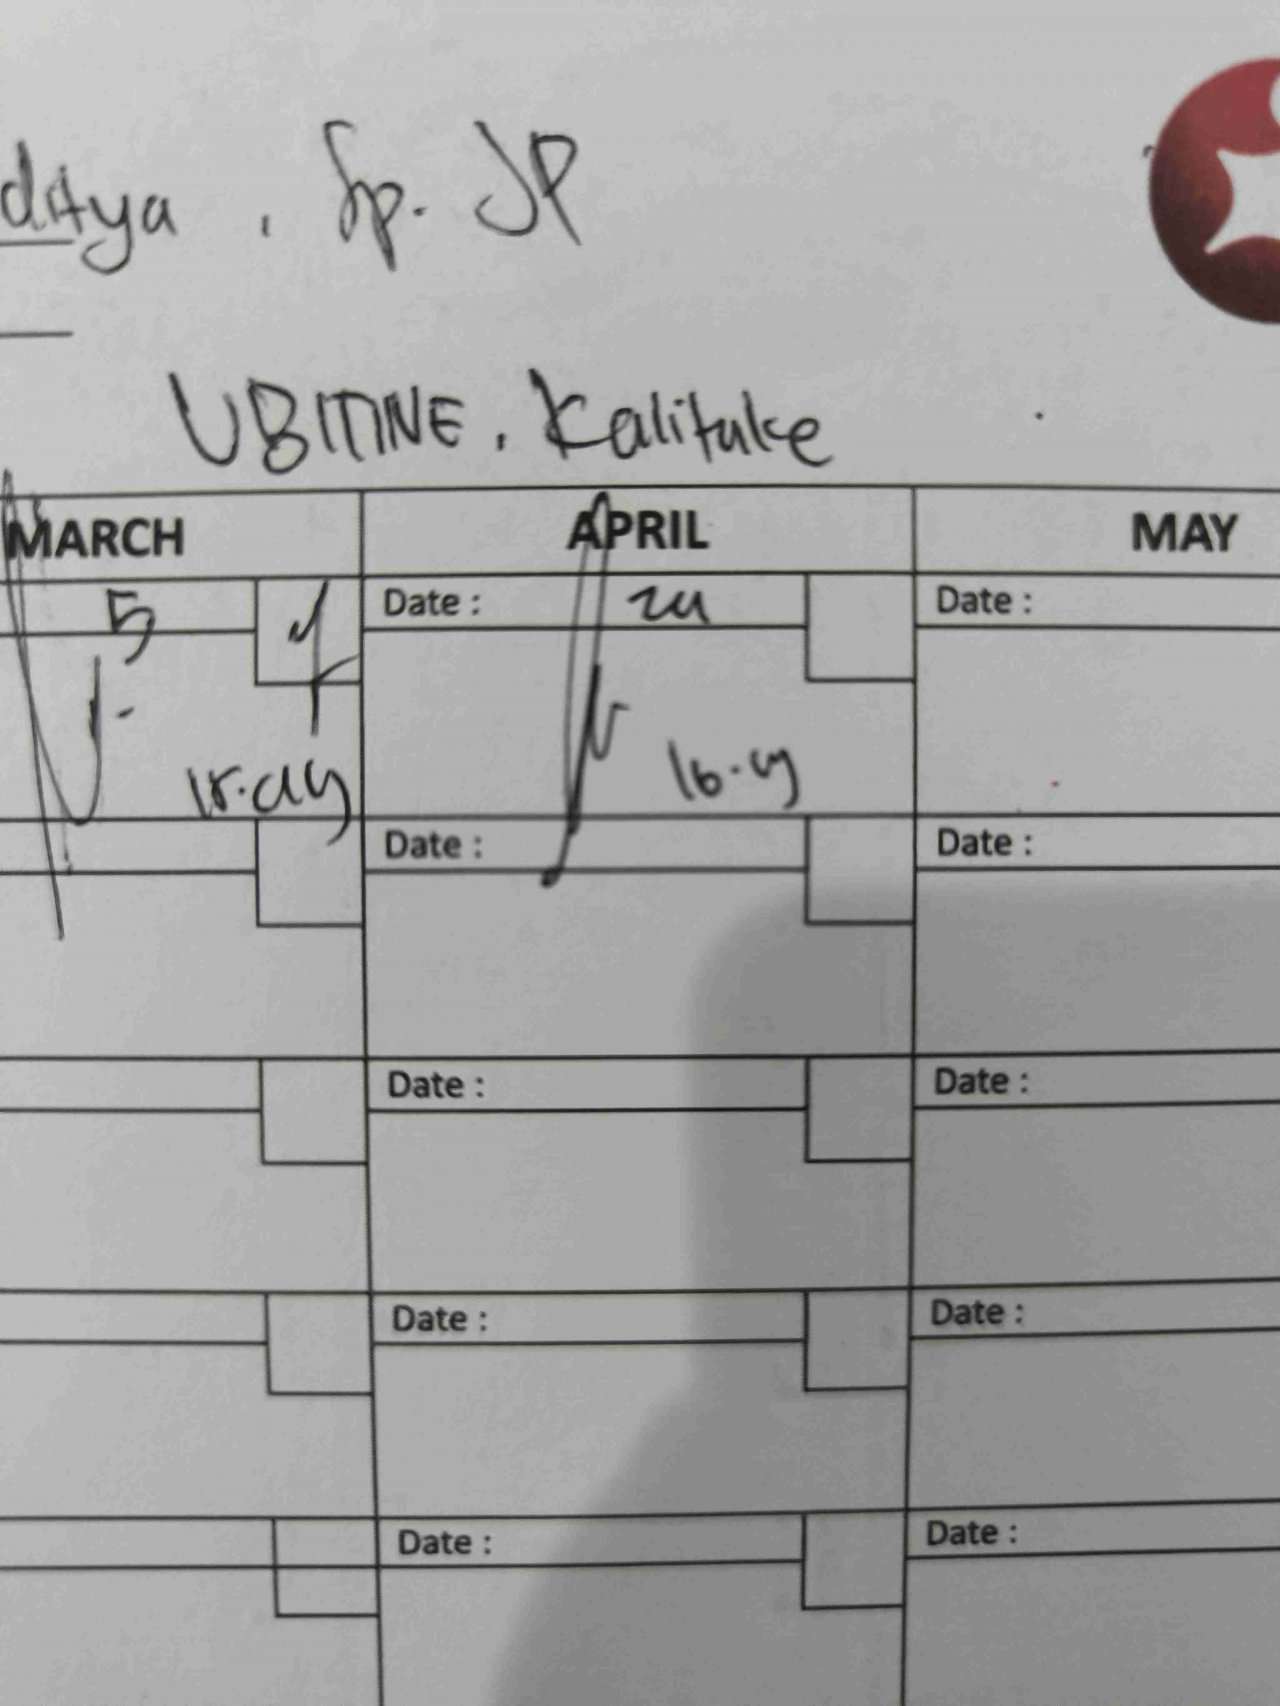 ditya, Sp. JP
UBITINE, Kalitake
MARCH APRIL MAY
5 Date : 24 Date :
Date : Date :
Date : Date :
Date : Date :
Date : Date :